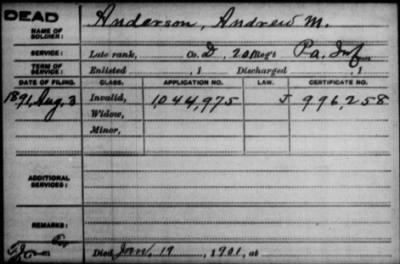 DEAD
NAME OF SOLDIER: Anderson, Andrew M.
SERVICE: Late rank, Co. D, 201 Reg't Pa. Inf.
TERM OF SERVICE: Enlisted , 1 Discharged , 1
DATE OF FILING. CLASS. APPLICATION NO. LAW. CERTIFICATE NO.
1891, Aug. 3 Invalid, 1,044,975 J 996,258
Widow,
Minor,
ADDITIONAL SERVICES:
REMARKS:
Died Jan. 19, 1901, at